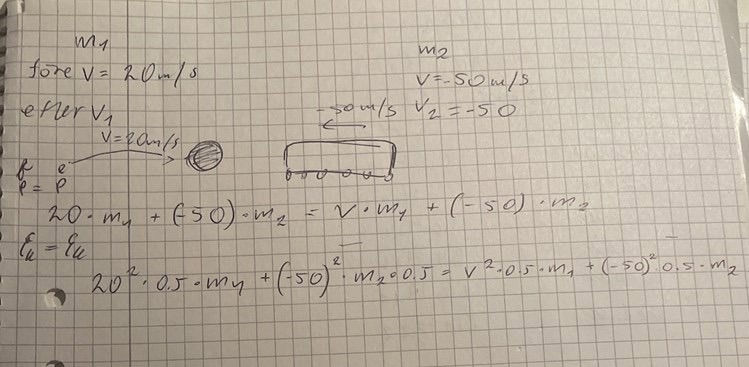 m₁
m₂
före v = 20 m/s
v = -50 m/s
efter v₁
v₂ = -50
-50 m/s
v = 20 m/s
f e
p = p
20 · m₁ + (-50) · m₂ = v · m₁ + (-50) · m₂
Eₖ = Eₖ
20² · 0.5 · m₁ + (-50)² · m₂ · 0.5 = v² · 0.5 · m₁ + (-50)² 0.5 · m₂